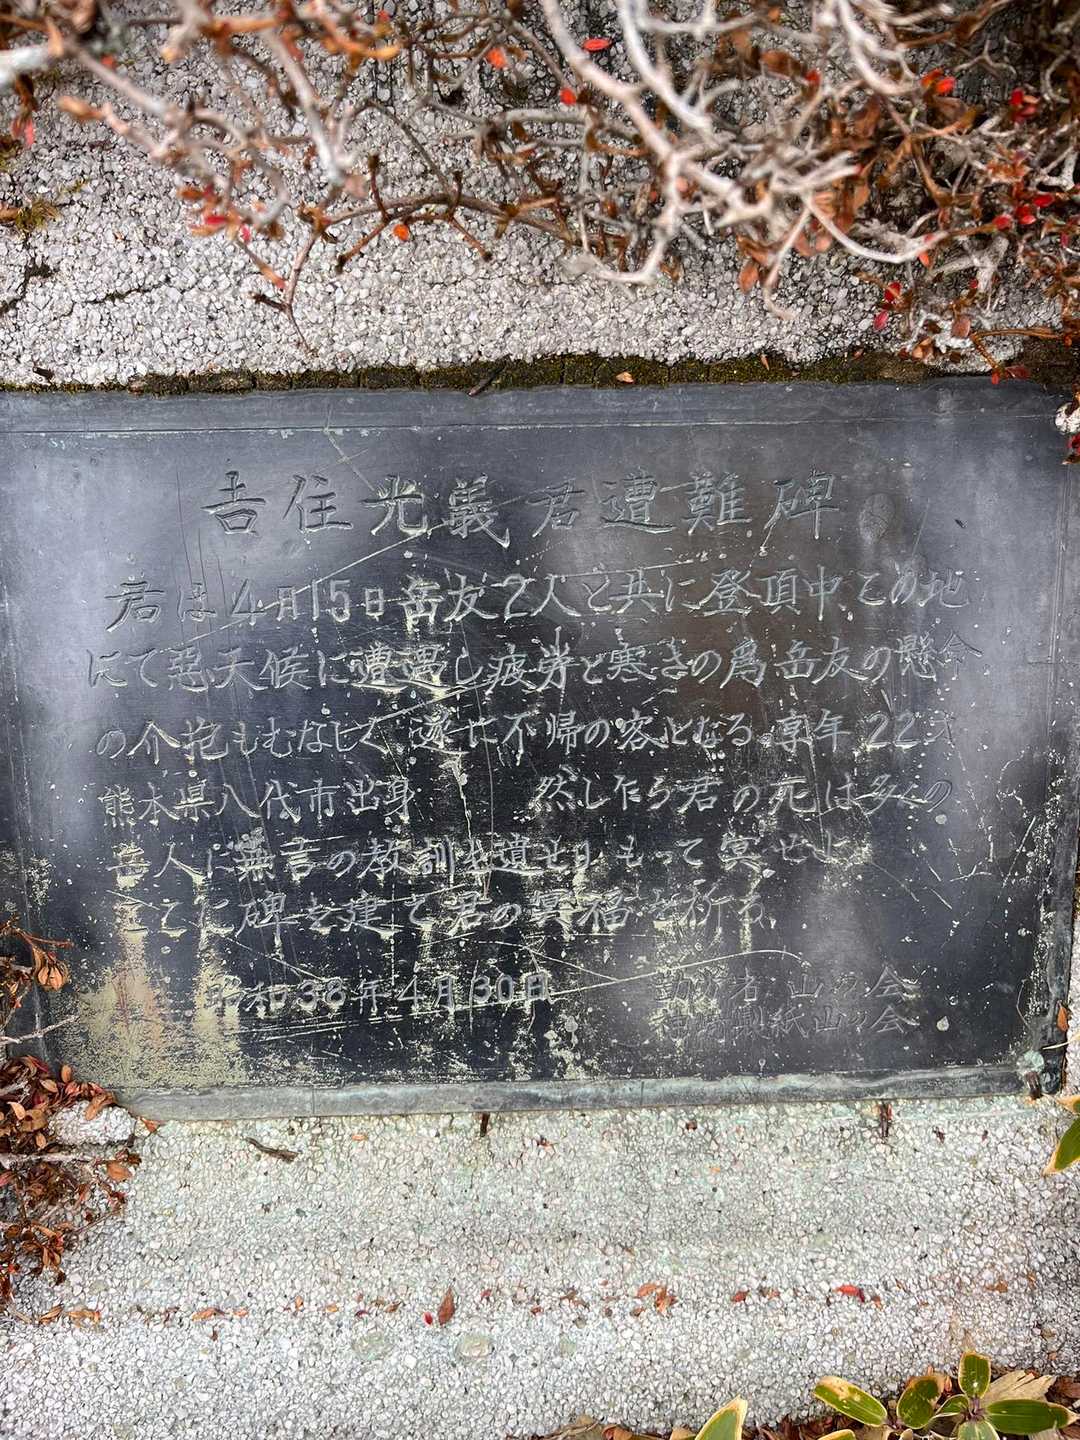 吉住光義君遭難碑
君は4月15日岳友2人と共に登頂中この地
にて悪天候に遭遇し疲労と寒さの為岳友の懸命
の介抱もむなしく遂に不帰の客となる 享年22才
熊本県八代市出身 然し乍ら君の死は多くの
岳人に無言の教訓を遺せり もって冥せよ
ここに碑を建て君の冥福を祈る
昭和38年4月30日 山の会
山の会